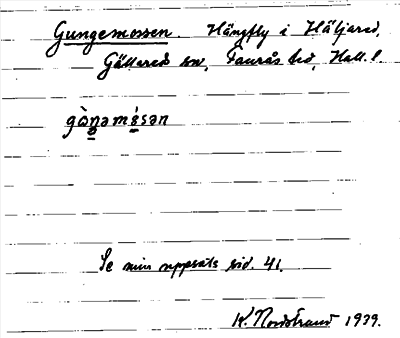 Gungemossen. Hängfly i Häljared,
Gällared sn, Faurås hd, Hall. l.
gòŋəmósən
Se min uppsats sid. 41.
K. Nordstrand 1939.